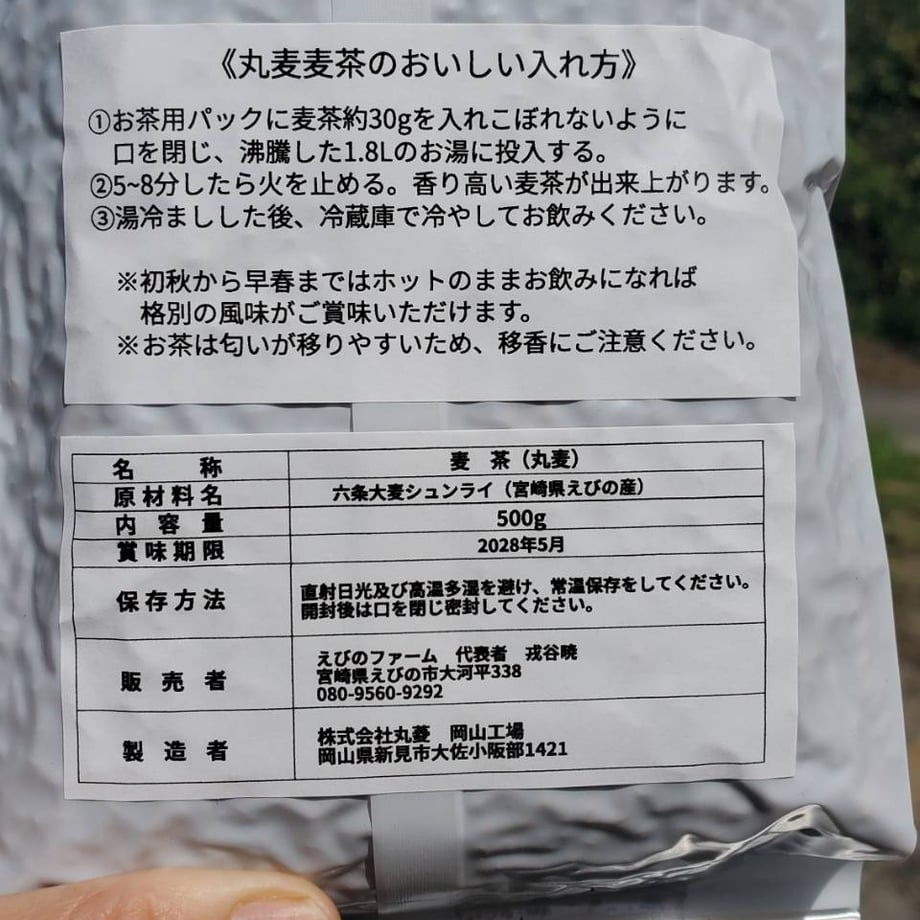 《丸麦麦茶のおいしい入れ方》
①お茶用パックに麦茶約30gを入れこぼれないように
口を閉じ、沸騰した1.8Lのお湯に投入する。
②5~8分したら火を止める。香り高い麦茶が出来上がります。
③湯冷ましした後、冷蔵庫で冷やしてお飲みください。
※初秋から早春まではホットのままお飲みになれば
格別の風味がご賞味いただけます。
※お茶は匂いが移りやすいため、移香にご注意ください。
名 称 麦 茶（丸麦）
原材料名 六条大麦シュンライ（宮崎県えびの産）
内 容 量 500g
賞味期限 2028年5月
保存方法 直射日光及び高温多湿を避け、常温保存をしてください。
開封後は口を閉じ密封してください。
販 売 者 えびのファーム 代表者 戎谷暁
宮崎県えびの市大河平338
080-9560-9292
製 造 者 株式会社丸菱 岡山工場
岡山県新見市大佐小阪部1421